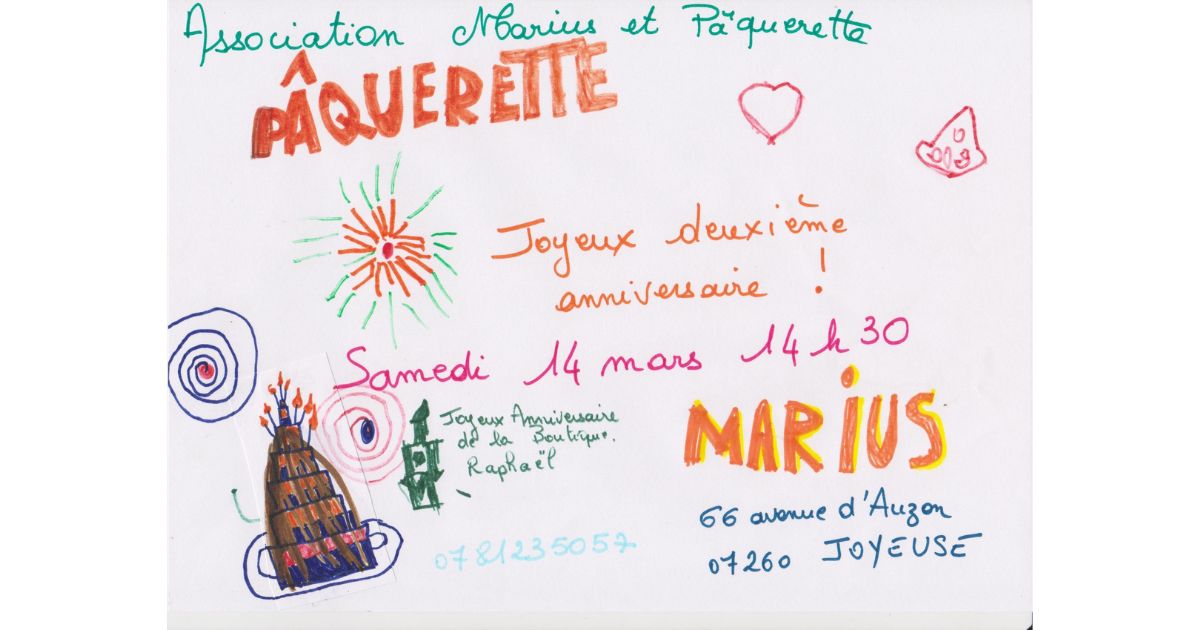 Association Marius et Pâquerette
PÂQUERETTE
Joyeux deuxième
anniversaire !
Samedi 14 mars 14 h 30
Joyeux Anniversaire
de la Boutique.
Raphaël
MARIUS
66 avenue d'Auzon
07260 JOYEUSE
0781235057